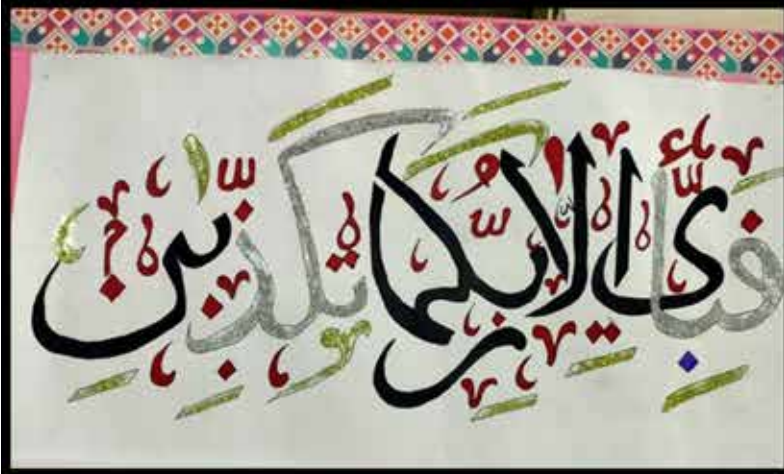 فَبِأَيِّ اٰلَآءِ رَبِّكُمَا تُكَذِّبٰنِ